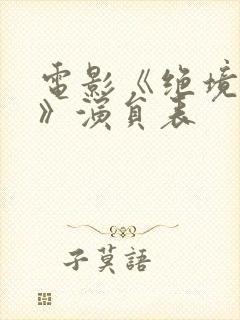 電影《绝境
》演員表
子莫語